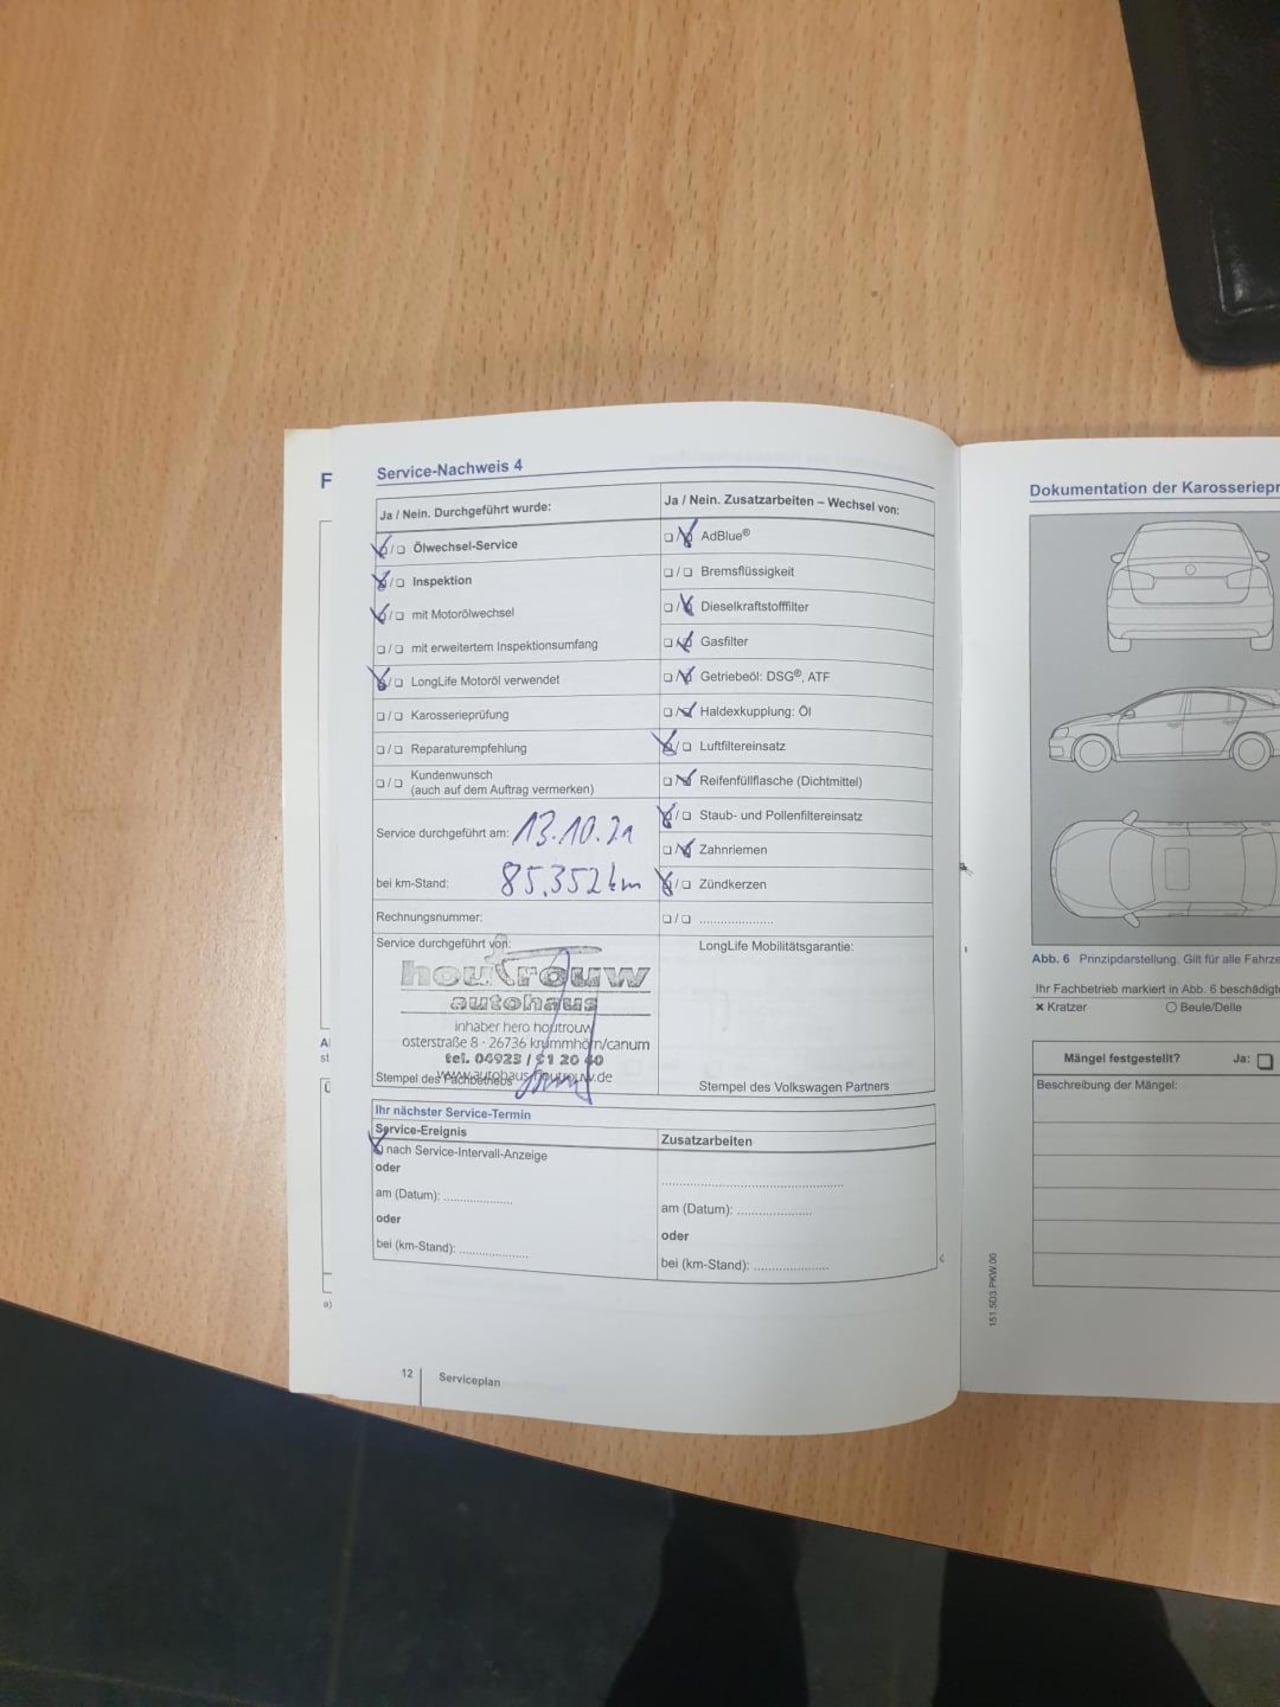 F
Service-Nachweis 4
Ja / Nein. Durchgeführt wurde:
☒/☐ Ölwechsel-Service
☒/☐ Inspektion
☒/☐ mit Motorölwechsel
☐/☐ mit erweitertem Inspektionsumfang
☒/☐ LongLife Motoröl verwendet
☐/☐ Karosserieprüfung
☐/☐ Reparaturempfehlung
☐/☐ Kundenwunsch
(auch auf dem Auftrag vermerken)
Service durchgeführt am: 13.10.21
bei km-Stand: 85.352 km
Rechnungsnummer:
Service durchgeführt von:
houtrouw
autohaus
inhaber hero houtrouw
osterstraße 8 · 26736 krummhörn/canum
tel. 04923 / 91 20 40
www.autohaus-houtrouw.de
Stempel des Fachbetriebs
Ja / Nein. Zusatzarbeiten – Wechsel von:
☐/☒ AdBlue®
☐/☐ Bremsflüssigkeit
☐/☒ Dieselkraftstofffilter
☐/☒ Gasfilter
☐/☒ Getriebeöl: DSG®, ATF
☐/☒ Haldexkupplung: Öl
☒/☐ Luftfiltereinsatz
☐/☒ Reifenfüllflasche (Dichtmittel)
☒/☐ Staub- und Pollenfiltereinsatz
☐/☒ Zahnriemen
☒/☐ Zündkerzen
☐/☐ ....................
LongLife Mobilitätsgarantie:
Stempel des Volkswagen Partners
Ihr nächster Service-Termin
Service-Ereignis
☒ nach Service-Intervall-Anzeige
oder
am (Datum): ..................
oder
bei (km-Stand): ..................
Zusatzarbeiten
..................................................
am (Datum): ....................
oder
bei (km-Stand): ....................
12
Serviceplan
Dokumentation der Karosseriepr
Abb. 6 Prinzipdarstellung. Gilt für alle Fahrze
Ihr Fachbetrieb markiert in Abb. 6 beschädigte
× Kratzer ○ Beule/Delle
Mängel festgestellt? Ja: ☐
Beschreibung der Mängel:
151.5D3.PKW.00